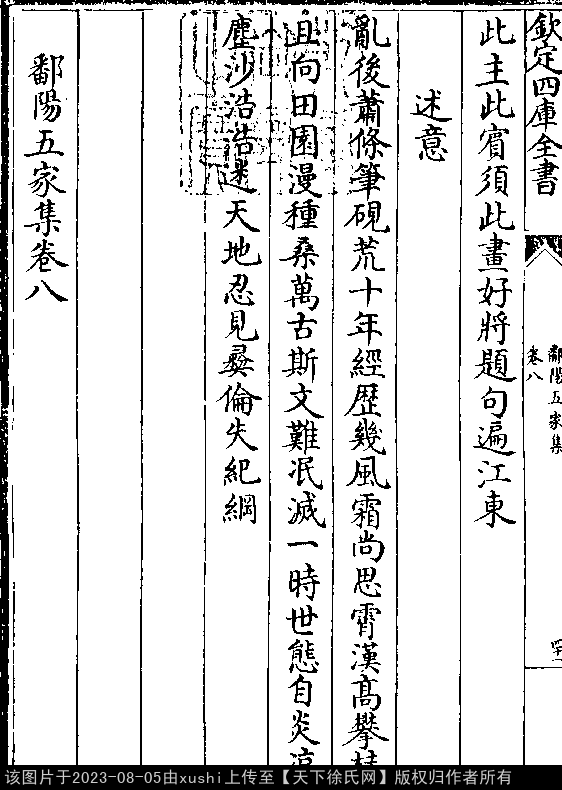 欽定四庫全書
鄱陽五家集
卷八
此主此賓須此畫好將題句遍江東
述意
亂後蕭條筆硯荒十年經歴幾風霜尚思霄漢髙攀桂
且向田園漫種桑萬古斯文難泯滅一時世態自炎涼
塵沙浩浩迷天地忍見彞倫失紀綱
鄱陽五家集卷八
该图片于2023-08-05由xushi上传至【天下徐氏网】版权归作者所有